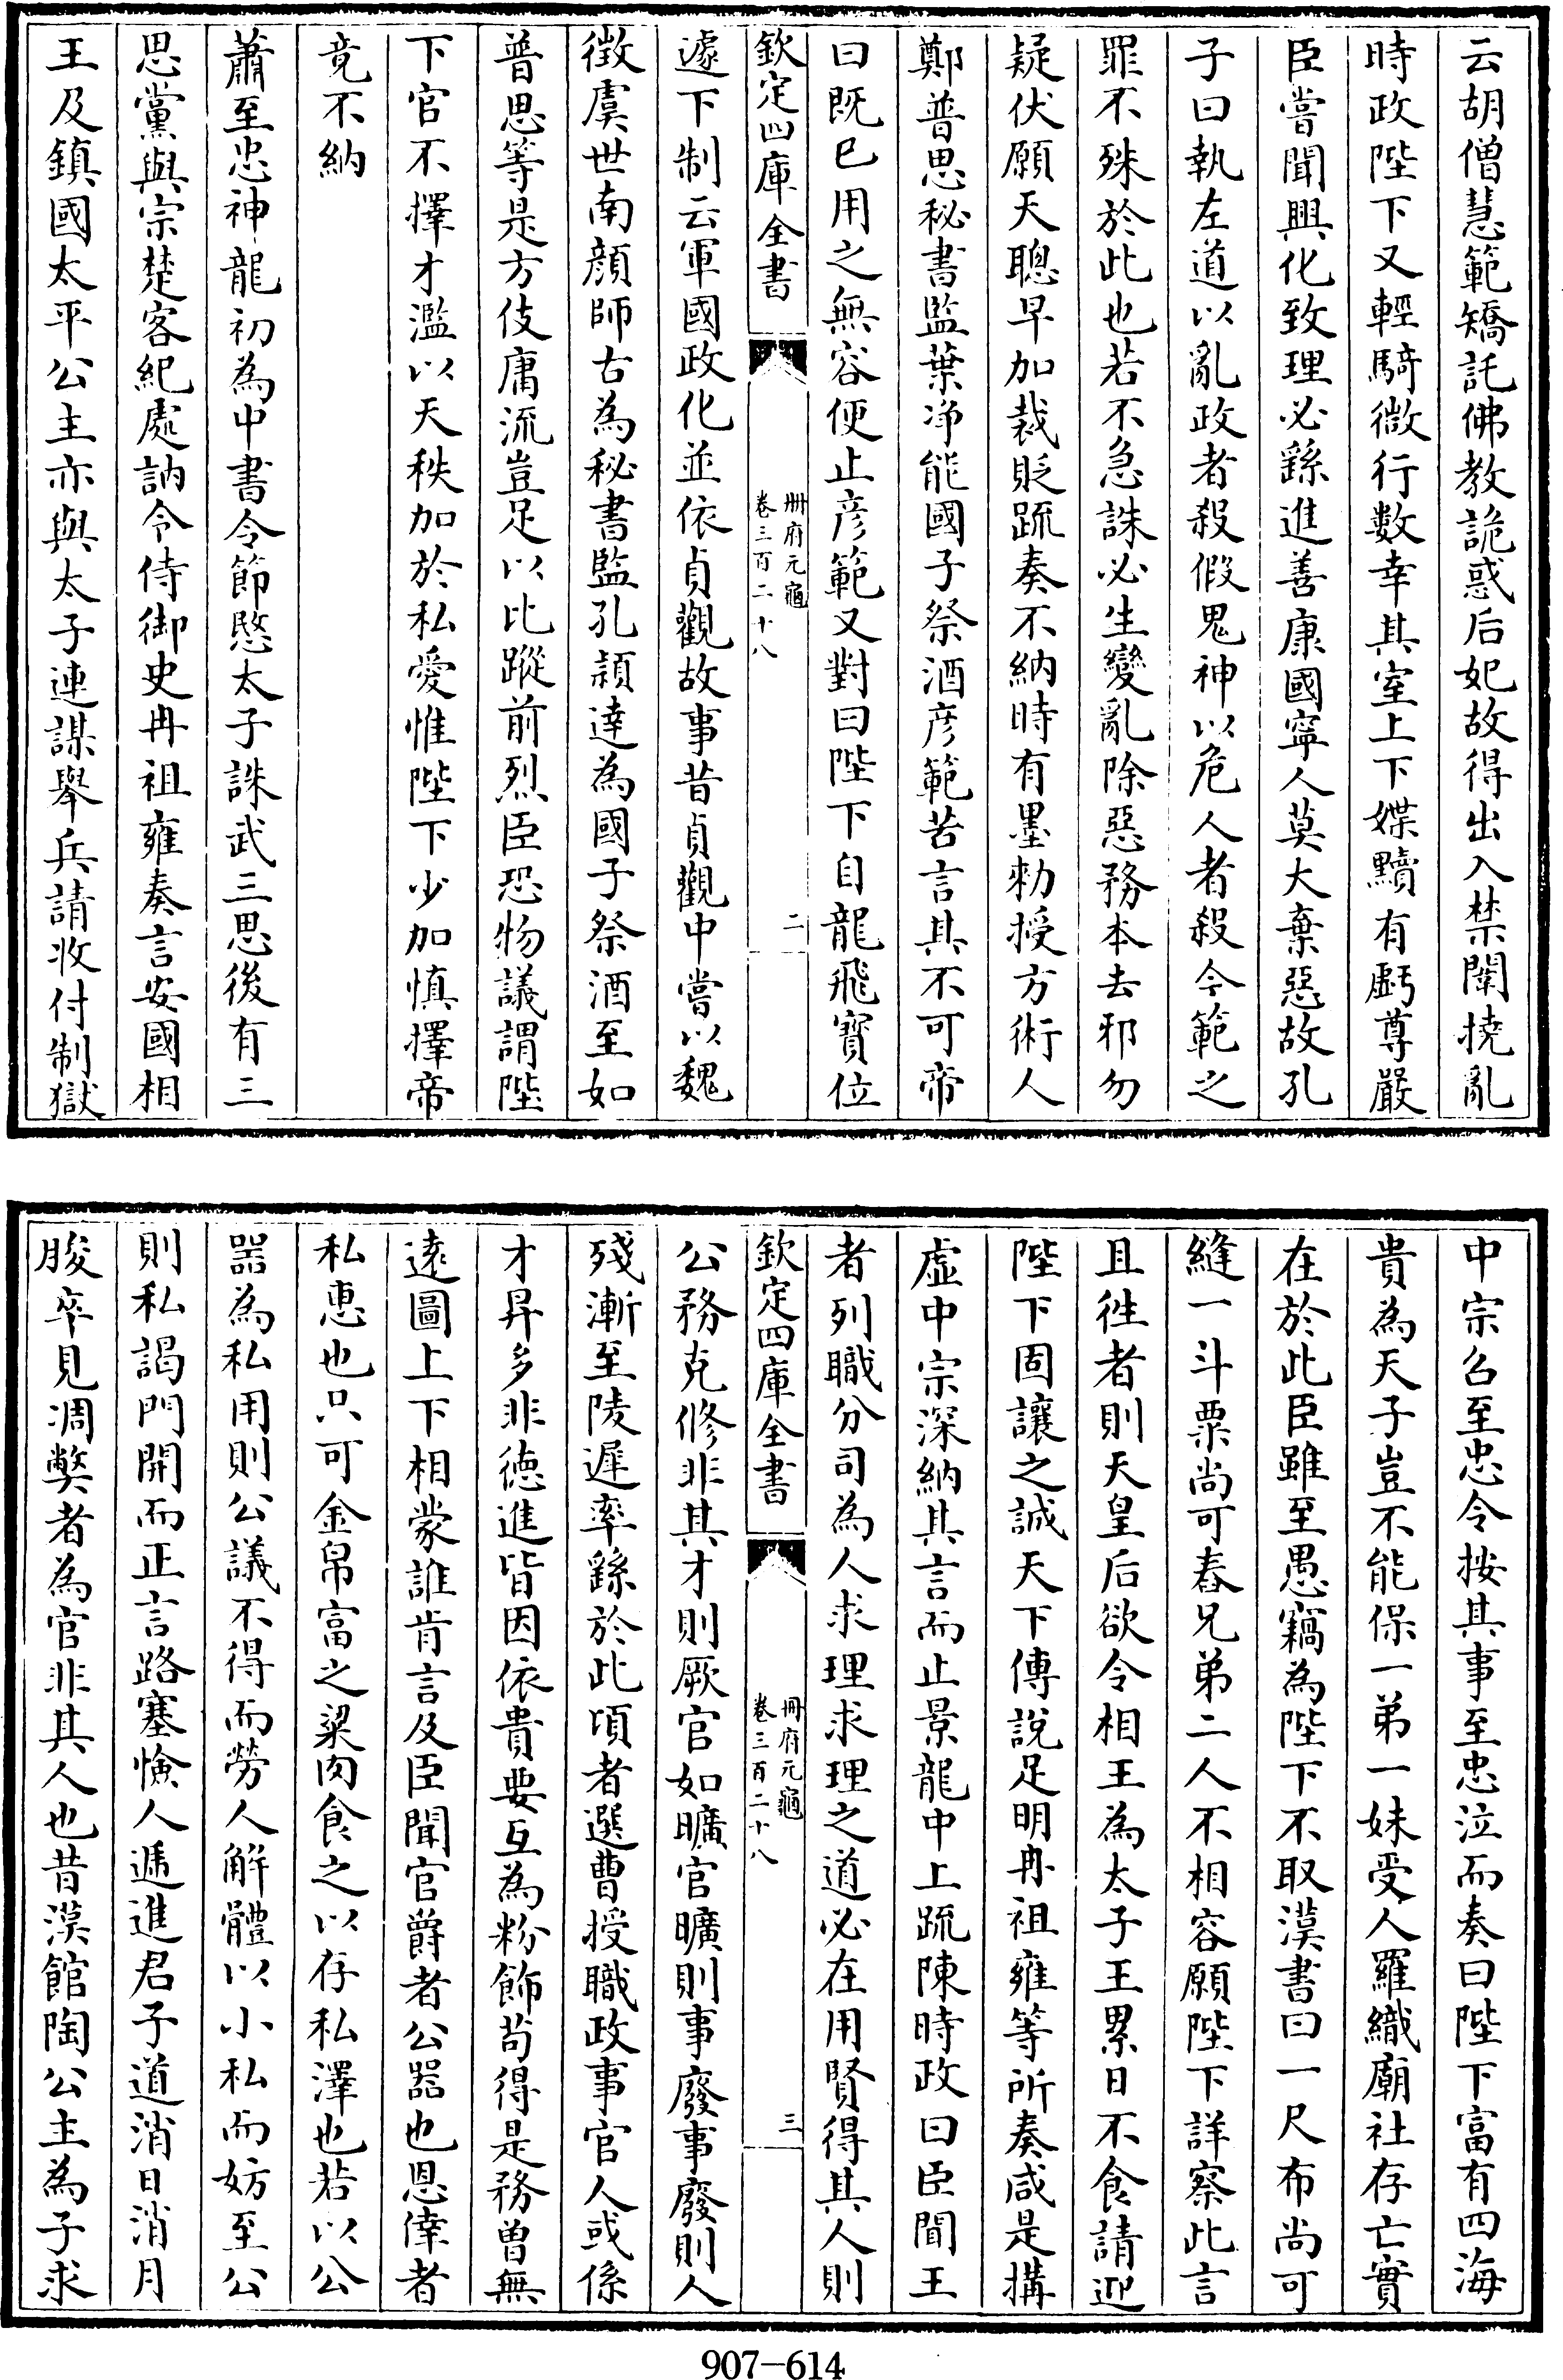 云胡僧慧範矯託佛教詭惑后妃故得出入禁闈撓亂
時政陛下又輕騎微行數幸其室上下媟黷有虧尊嚴
臣嘗聞興化致理必繇進善康國寧人莫大棄惡故孔
子曰執左道以亂政者殺假鬼神以危人者殺今範之
罪不殊於此也若不急誅必生變亂除惡務本去邪勿
疑伏願天聰早加裁貶疏奏不納時有墨勅授方術人
鄭普思秘書監葉净能國子祭酒彦範苦言其不可帝
曰既已用之無容便止彦範又對曰陛下自龍飛寳位
欽定四庫全書
冊府元龜
卷三百二十八
二
遽下制云軍國政化並依貞觀故事昔貞觀中嘗以魏
徴虞世南顔師古為秘書監孔頴達為國子祭酒至如
普思等是方伎庸流豈足以比蹤前烈臣恐物議謂陛
下官不擇才濫以天秩加於私愛惟陛下少加慎擇帝
竟不納
蕭至忠神龍初為中書令節愍太子誅武三思後有三
思黨與宗楚客紀處訥令侍御史冉祖雍奏言安國相
王及鎮國太平公主亦與太子連謀舉兵請收付制獄
中宗召至忠令按其事至忠泣而奏曰陛下富有四海
貴為天子豈不能保一弟一妹受人羅織廟社存亡實
在於此臣雖至愚竊為陛下不取漢書曰一尺布尚可
縫一斗粟尚可舂兄弟二人不相容願陛下詳察此言
且徃者則天皇后欲令相王為太子王累日不食請迎
陛下固讓之誠天下傳說足明冉祖雍等所奏咸是搆
虚中宗深納其言而止景龍中上疏陳時政曰臣聞王
者列職分司為人求理求理之道必在用賢得其人則
欽定四庫全書
冊府元龜
卷三百二十八
三
公務克修非其才則厥官如曠官曠則事廢事廢則人
殘漸至陵遲率繇於此頃者選曹授職政事官人或係
才昇多非徳進皆因依貴要互為粉飾苟得是務曽無
逺圖上下相蒙誰肯言及臣聞官爵者公器也恩倖者
私惠也只可金帛富之粱肉食之以存私澤也若以公
器為私用則公議不得而勞人解體以小私而妨至公
則私謁門開而正言路塞憸人遞進君子道消日消月
朘卒見凋弊者為官非其人也昔漢館陶公主為子求
907-614